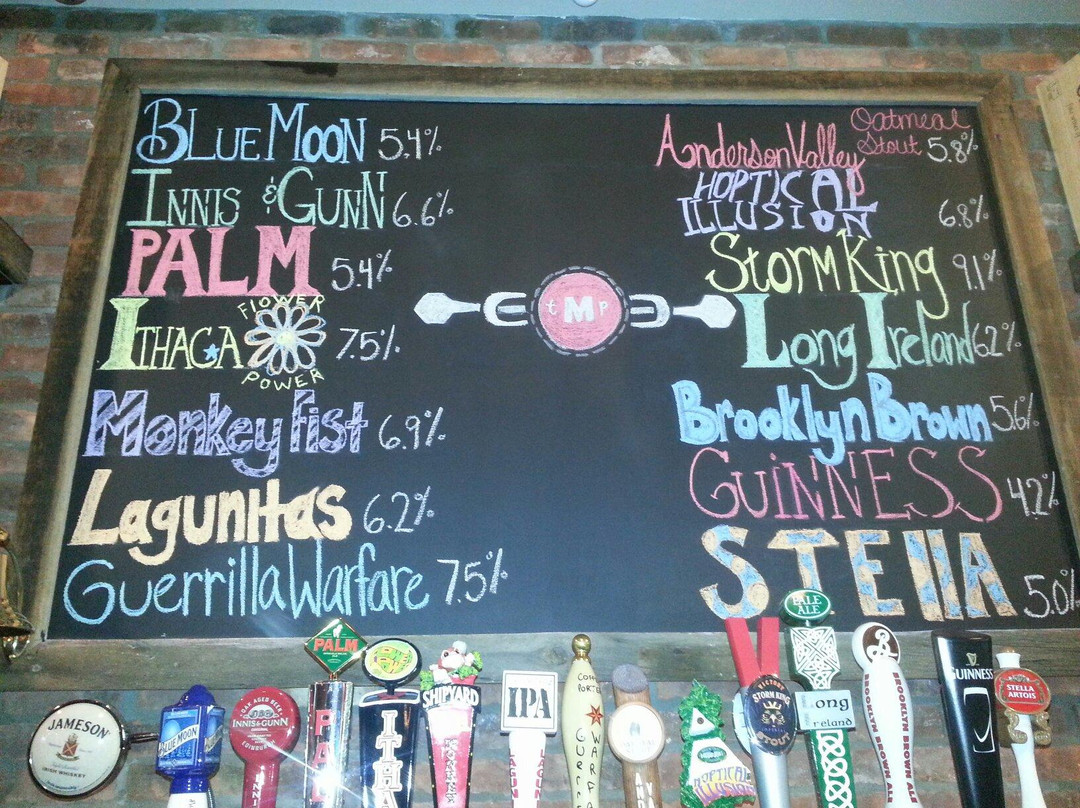 BLUE MOON 5.4%
INNIS & GUNN 6.6%
PALM 5.4%
ITHACA FLOWER POWER 7.5%
Monkey Fist 6.9%
Lagunitas 6.2%
Guerrilla Warfare 7.5%
tMp
Anderson Valley Oatmeal Stout 5.8%
HOPTICAL
ILLUSION 6.8%
Storm King 9.1%
Long Ireland 6.2%
Brooklyn Brown 5.6%
GUiNNESS 4.2%
STEllA 5.0%
JAMESON
IRISH WHISKEY
BLUE MOON
OAK AGED BEER
INNIS & GUNN
EDINBURGH
INNIS
PALM
PAL
ITHA
SHIPYARD
IPA
LAGUN
GUERR
WARFA
HOPTICAL
ILLUSION
VICTORY
STORM KING
STOUT
PALE
ALE
Long
Ireland
BROOKLYN BROWN ALE
BROOKLYN BROWN ALE
GUINNESS
STELLA
ARTOIS